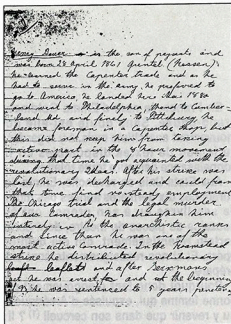 Henry Bauer is the son of peasants and
was born 28 April 1861 (Hessen).
he learned the Carpenter trade and as he
had to serve in the army, he prefered to
go to America he landed here Mai 1880
and went to Philadelphia
Land and finally to Pittsburg he
became foreman in a Carpenter shop, but
this did not keep him from taking
active part in the 8 hour movement
during that time he got aquainted with the
revolutionary Ideas. After his strike was
lost, he was discharged and rarely from
that time found a steady employment
The Chicago trial and the legal murder
of our Comrades, has brought him
entirely in to the anarchistic ranks
and since than he was one of the
most active Comrade. In the Homestead
strike he distributed revolutionary
Leaflets and after Bergmanns
he was arrested and at the beginning
he was sentenced to 5 years